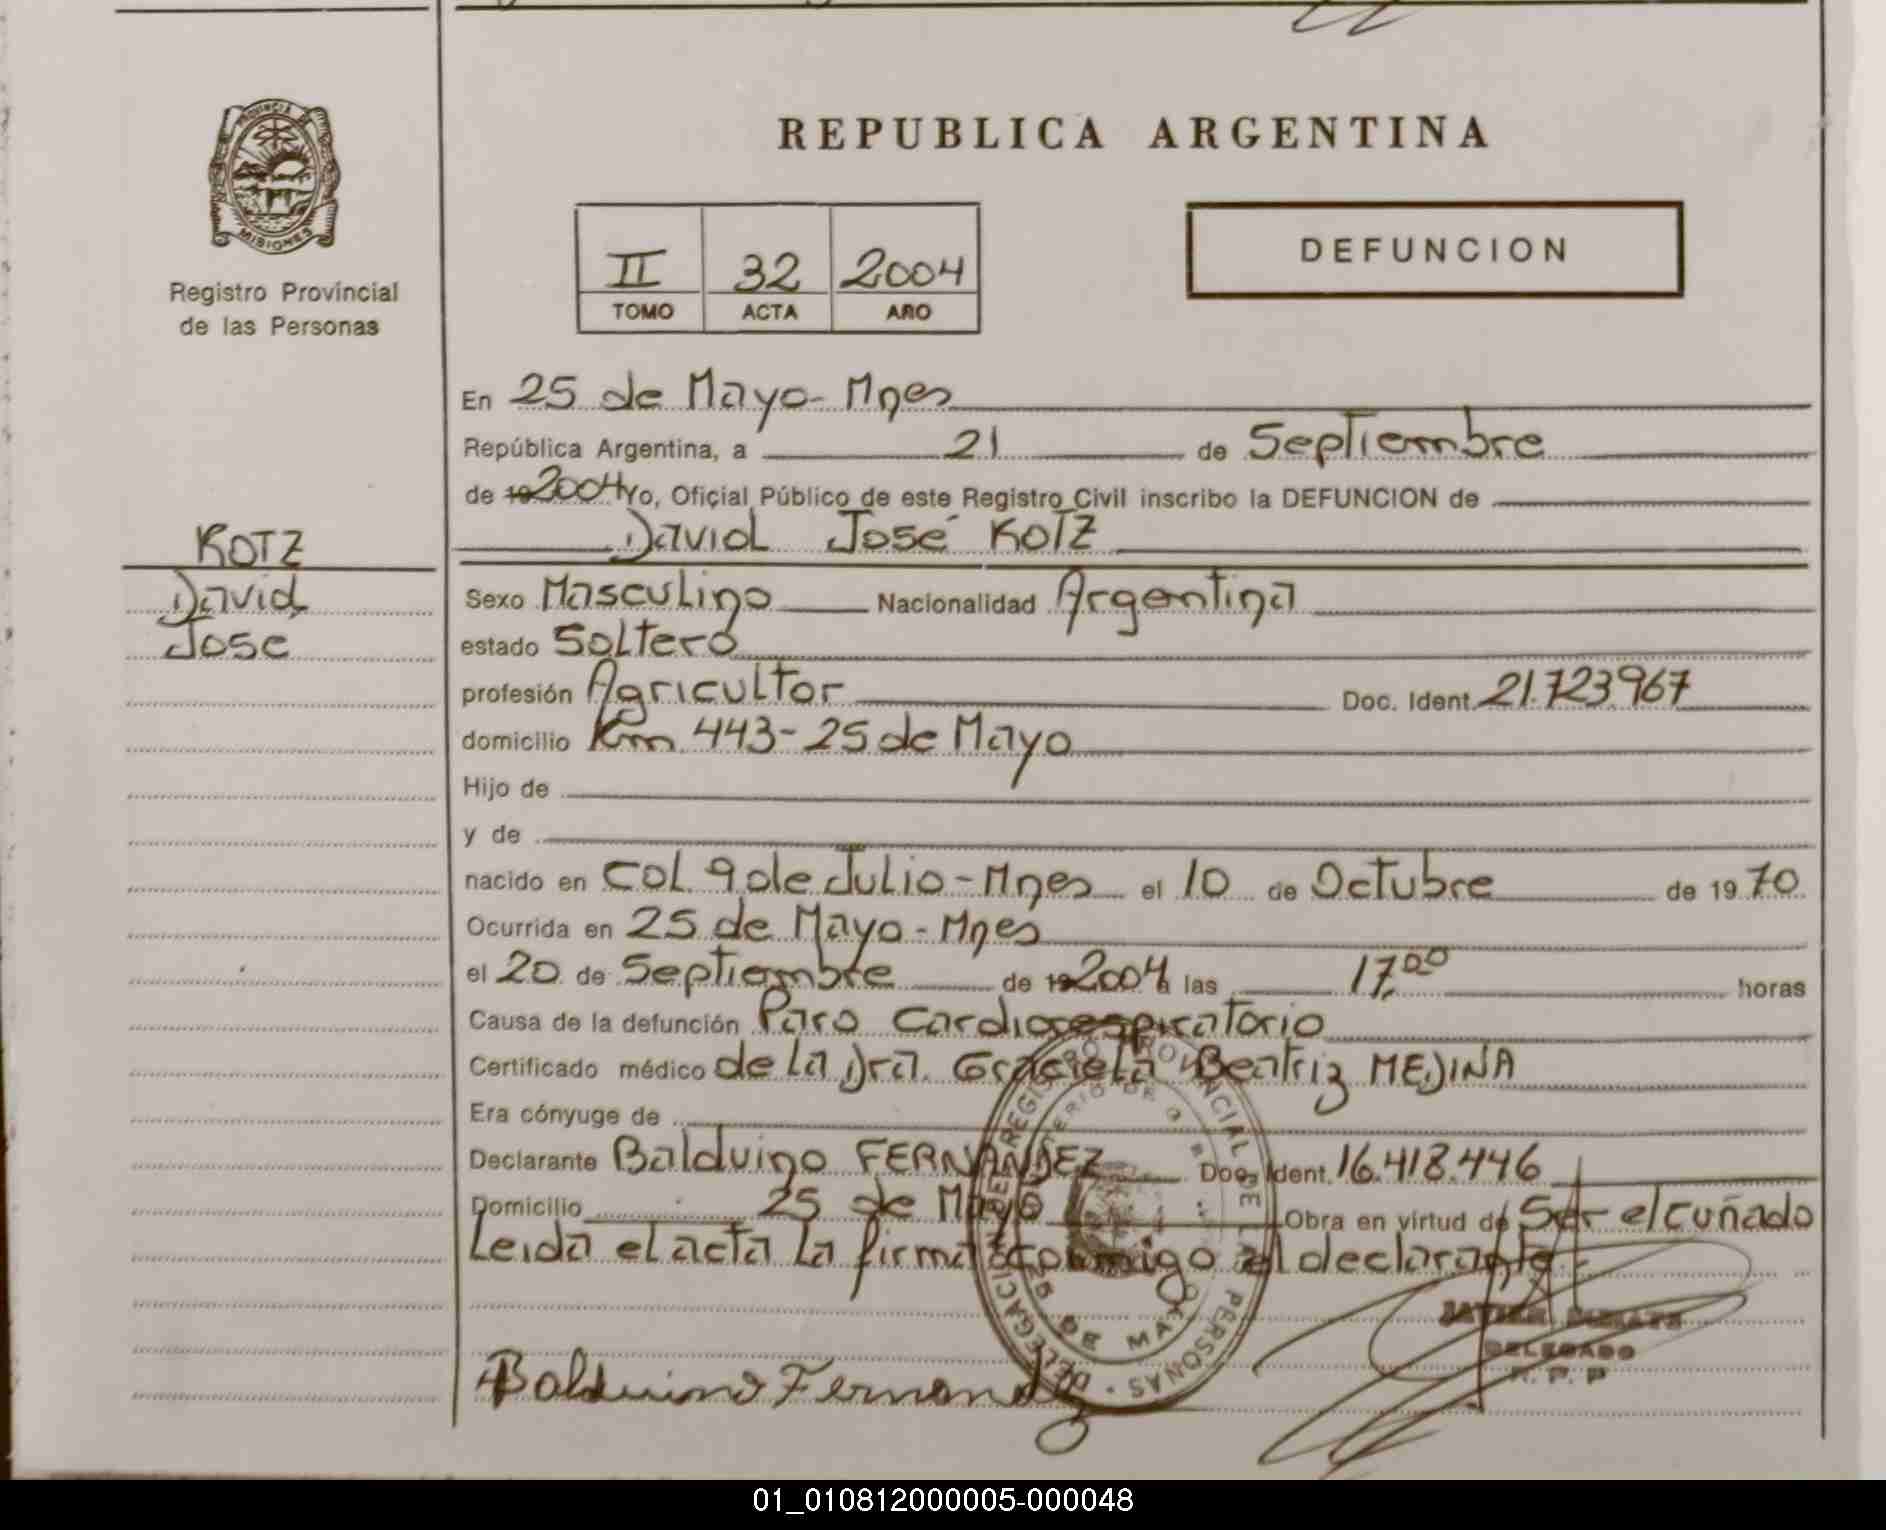 PROVINCIA DE
MISIONES
Registro Provincial
de las Personas
REPUBLICA ARGENTINA
II 32 2004
TOMO ACTA AÑO
DEFUNCION
En 25 de Mayo - Mnes
República Argentina, a 21 de Septiembre
de 19 2004 Yo, Oficial Público de este Registro Civil inscribo la DEFUNCION de
David José KOTZ
KOTZ
David
Jose
Sexo Masculino Nacionalidad Argentina
estado Soltero
profesión Agricultor Doc. Ident. 21.723.967
domicilio Km 443 - 25 de Mayo
Hijo de
y de
nacido en Col. 9 de Julio - Mnes el 10 de Octubre de 19 70
Ocurrida en 25 de Mayo - Mnes
el 20 de Septiembre de 19 2004 a las 17,00 horas
Causa de la defunción Paro Cardiorespiratorio
Certificado médico de la Dra. Graciela Beatriz MEDINA
Era cónyuge de
Declarante Balduino FERNANDEZ Doc. Ident. 16.418.446
Domicilio 25 de Mayo Obra en virtud de Ser el cuñado
Leida el acta la firma conmigo el declarante
DELEGACION DEL REGISTRO PROVINCIAL DE LAS PERSONAS
25 DE MAYO
Balduino Fernandez
DELEGADO
R. P. P
01_010812000005-000048